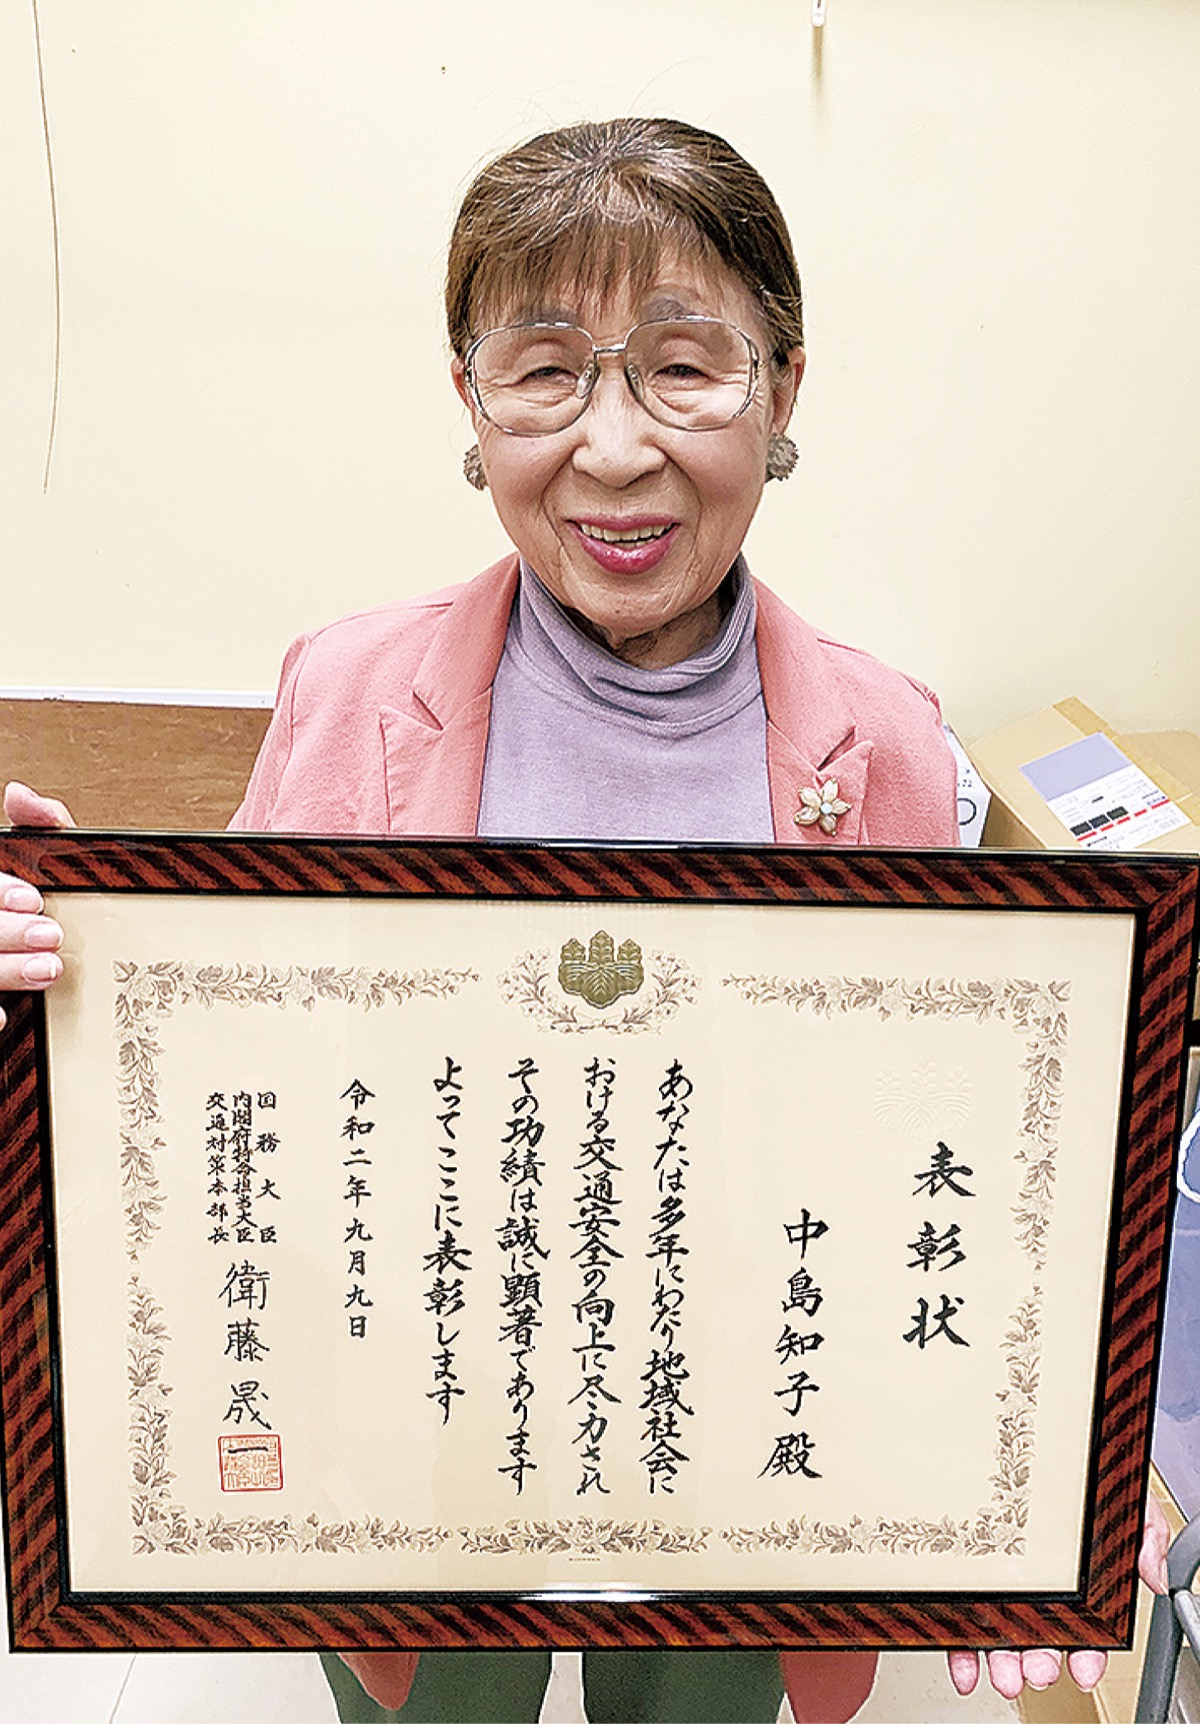 表彰状
中島知子殿
あなたは多年にわたり地域社会に
おける交通安全の向上に尽力され
その功績は誠に顕著であります
よってここに表彰します
令和二年九月九日
国務大臣
内閣府特命担当大臣
交通対策本部長
衛藤晟一